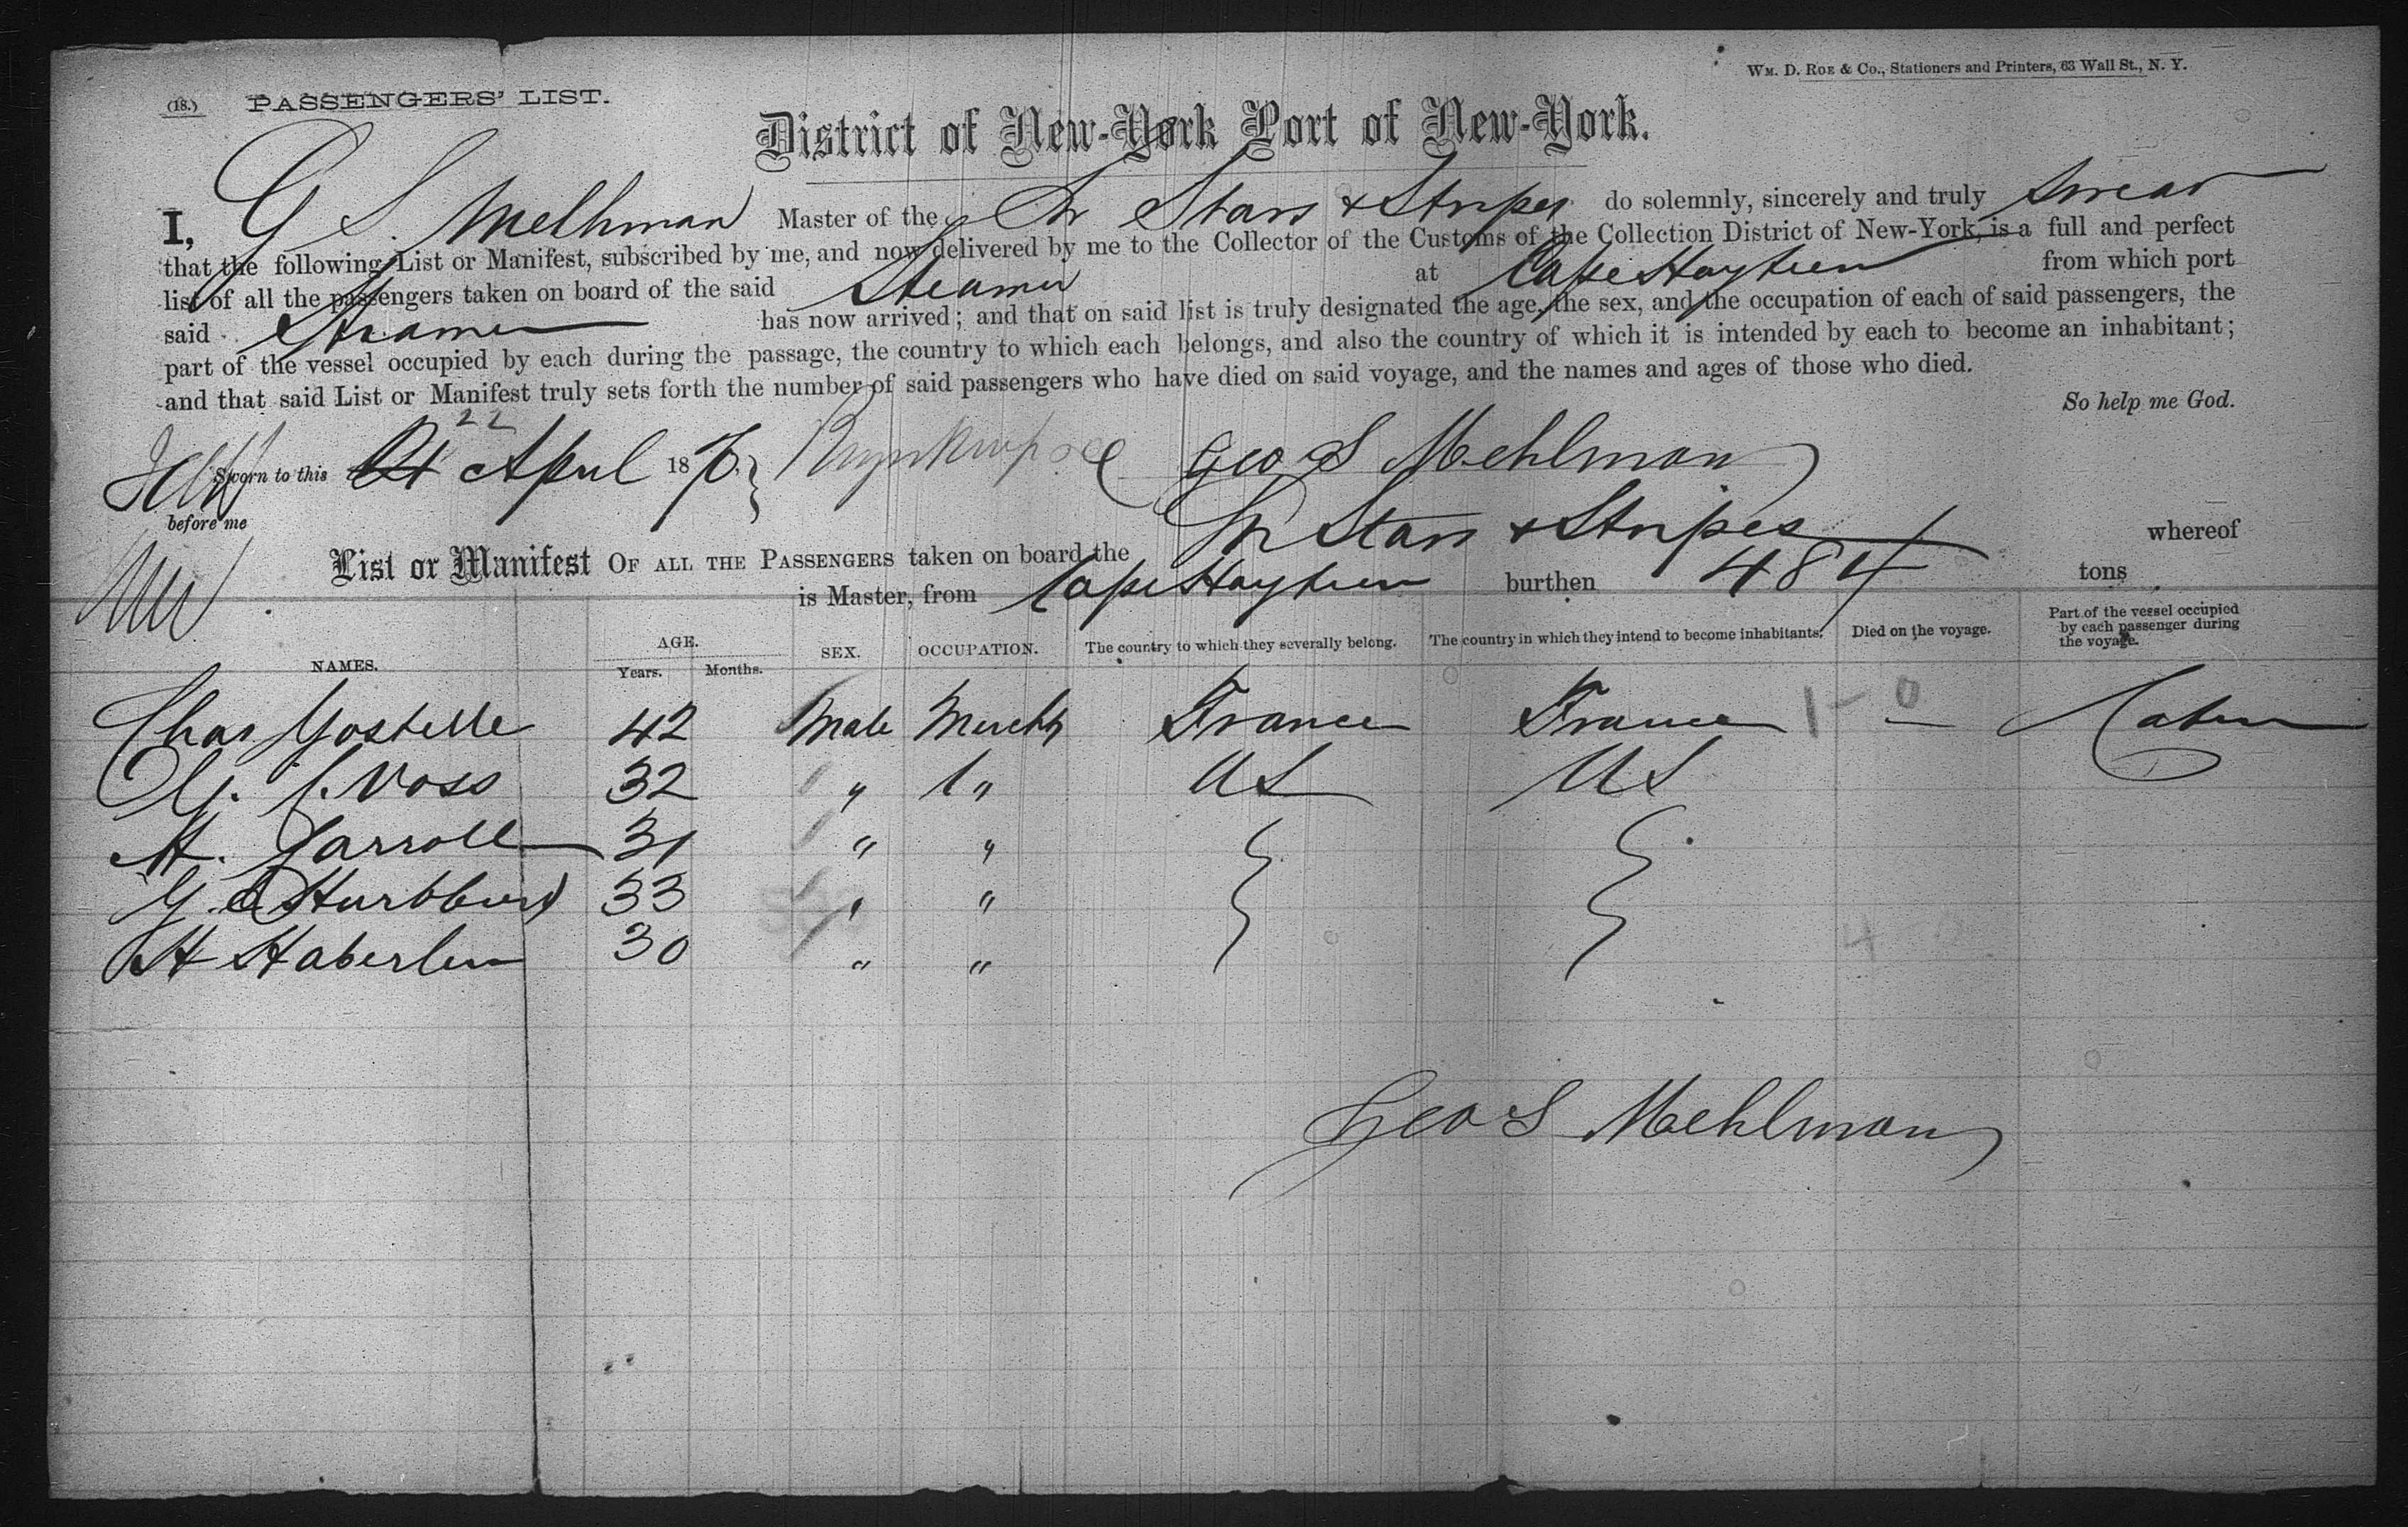 (18.) PASSENGERS' LIST.
WM. D. ROE & Co., Stationers and Printers, 63 Wall St., N. Y.
District of New-York Port of New-York.
I, G S. Melhman Master of the Str Stars & Stripes do solemnly, sincerely and truly swear
that the following List or Manifest, subscribed by me, and now delivered by me to the Collector of the Customs of the Collection District of New-York, is a full and perfect
list of all the passengers taken on board of the said Steamer at Cape Haytien from which port
said Steamer has now arrived; and that on said list is truly designated the age, the sex, and the occupation of each of said passengers, the
part of the vessel occupied by each during the passage, the country to which each belongs, and also the country of which it is intended by each to become an inhabitant;
and that said List or Manifest truly sets forth the number of said passengers who have died on said voyage, and the names and ages of those who died.
So help me God.
22
Sworn to this 21 April 18 Geo S Mehlman
before me
List or Manifest OF ALL THE PASSENGERS taken on board the Str Stars & Stripes whereof
is Master, from Cape Haytien burthen 484 tons
NAMES. AGE. Years. Months. SEX. OCCUPATION. The country to which they severally belong. The country in which they intend to become inhabitants. Died on the voyage. Part of the vessel occupied by each passenger during the voyage.
Chas 42 Male Mercht France France 1 - 0 — Cabin
Voss 32 " " US US
H. 31 " "
G. 33 " "
H 30 " "
Geo S Mehlman